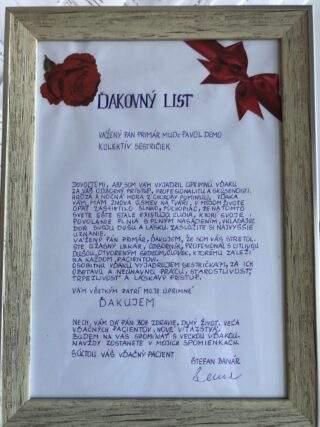 ĎAKOVNÝ LIST
VÁŽENÝ PÁN PRIMÁR MUDr PAVOL DEMO
KOLEKTÍV SESTRIČIEK
DOVOĽTE MI, ABY SOM VÁM VYJADRIL ÚPRIMNÚ VĎAKU
ZA VÁŠ ODBORNÝ PRÍSTUP, PROFESIONALITU A SKÚSENOSTI.
HRÔZA A NOČNÁ MORA Z CHOROBY POMINULI. VĎAKA
VÁM, MÁM ZNOVA ÚSMEV NA TVÁRI, V MOJOM ŽIVOTE
OPÄŤ ZASVIETILO SLNKO. POCHOPIL SOM, ŽE NA TOMTO
SVETE EŠTE STÁLE EXISTUJÚ ĽUDIA, KTORÍ SVOJE
POVOLANIE PLNIA S PLNÝM NASADENÍM, VKLADAJÚC
DOŇ SVOJU DUŠU A LÁSKU. ZASLÚŽITE SI NAJVYŠŠIE
UZNANIE.
VÁŽENÝ PÁN PRIMÁR, ĎAKUJEM, ŽE SOM VÁS STRETOL.
STE ÚŽASNÝ LEKÁR, ODBORNÍK, PROFESIONÁL S CITLIVOU
DUŠOU, OTVORENÝM SRDCOM, ČLOVEK, KTORÉMU ZÁLEŽÍ
NA KAŽDOM PACIENTOVI.
OSOBITNÚ VĎAKU VYJADRUJEM SESTRIČKÁM, ZA ICH
OBETAVÚ A NEÚNAVNÚ PRÁCU, STAROSTLIVOSŤ,
TRPEZLIVOSŤ A LÁSKAVÝ PRÍSTUP.
VÁM VŠETKÝM PATRÍ MOJE ÚPRIMNÉ
ĎAKUJEM
NECH VÁM DÁ PÁN BOH ZDRAVIE, DLHÝ ŽIVOT, VEĽA
VĎAČNÝCH PACIENTOV, NOVÉ VÍŤAZSTVÁ.
BUDEM NA VÁS SPOMÍNAŤ S VEĽKOU VĎAKOU.
NAVŽDY ZOSTANETE V MOJICH SPOMIENKACH.
S ÚCTOU VÁŠ VĎAČNÝ PACIENT
ŠTEFAN BANÁR